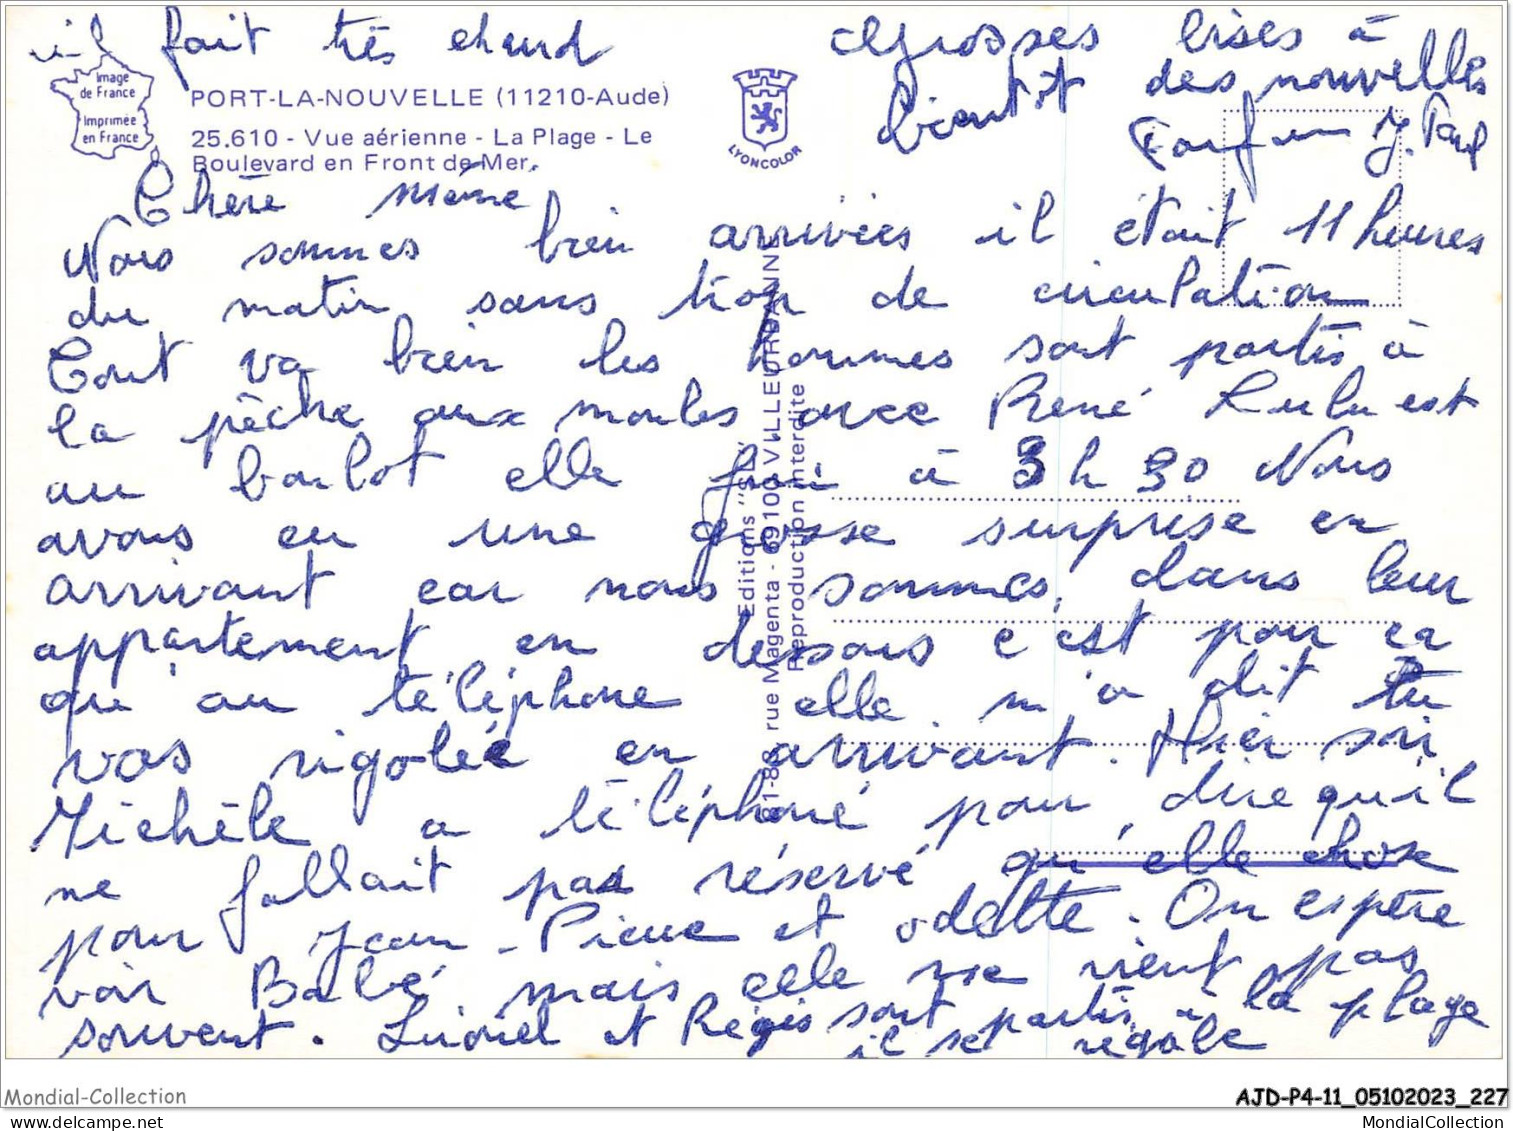 il fait très chaud
Grosses bises à
bientôt
des nouvelles
J. Paul
Image
de France
Imprimée
en France
PORT-LA-NOUVELLE (11210-Aude)
25.610 - Vue aérienne - La Plage - Le
Boulevard en Front de Mer.
LYONCOLOR
Editions "S.L."
81-83, rue Magenta - 69100 VILLEURBANNE
Reproduction interdite
Chère mémé
Nous sommes bien arrivées il était 11 heures
du matin sans trop de circulation
Tout va bien les hommes sont partis à
la pêche aux moules avec René Lulu est
au boulot elle fini à 3 h 30 Nous
avons eu une grosse surprise en
arrivant car nous sommes dans leur
appartement en dessous c'est pour ca
qu'au téléphone elle m'a dit tu
vas rigolée en arrivant. Hier soir
Michèle a téléphoné pour dire qu'il
ne fallait pas réservé qu'elle chose
pour Jean-Pierre et odette. On espère
voir Babé mais elle ne vient pas
souvent. Lionel et Régis sont partis à la plage
il set régale
Mondial-Collection
AJD-P4-11_05102023_227
MondialCollection